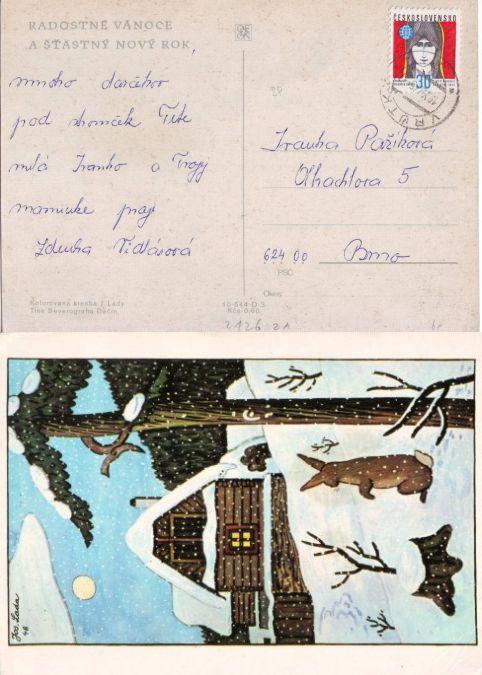 RADOSTNÉ VÁNOCE
A ŠŤASTNÝ NOVÝ ROK,
mnoho dárečkov
pod stromček Tebe
milá Ivanko a Tvojej
mamičke praje
Zdenka Vidlásová
Kolorovaná kresba J. Lady
Tisk Severografia Děčín
ČESKOSLOVENSKO
30
Ivanka Pažíková
Olbachtova 5
624 00
Brno
PSČ
Okres
10-644-D-3
Kčs 0,60
Jos. Lada
48